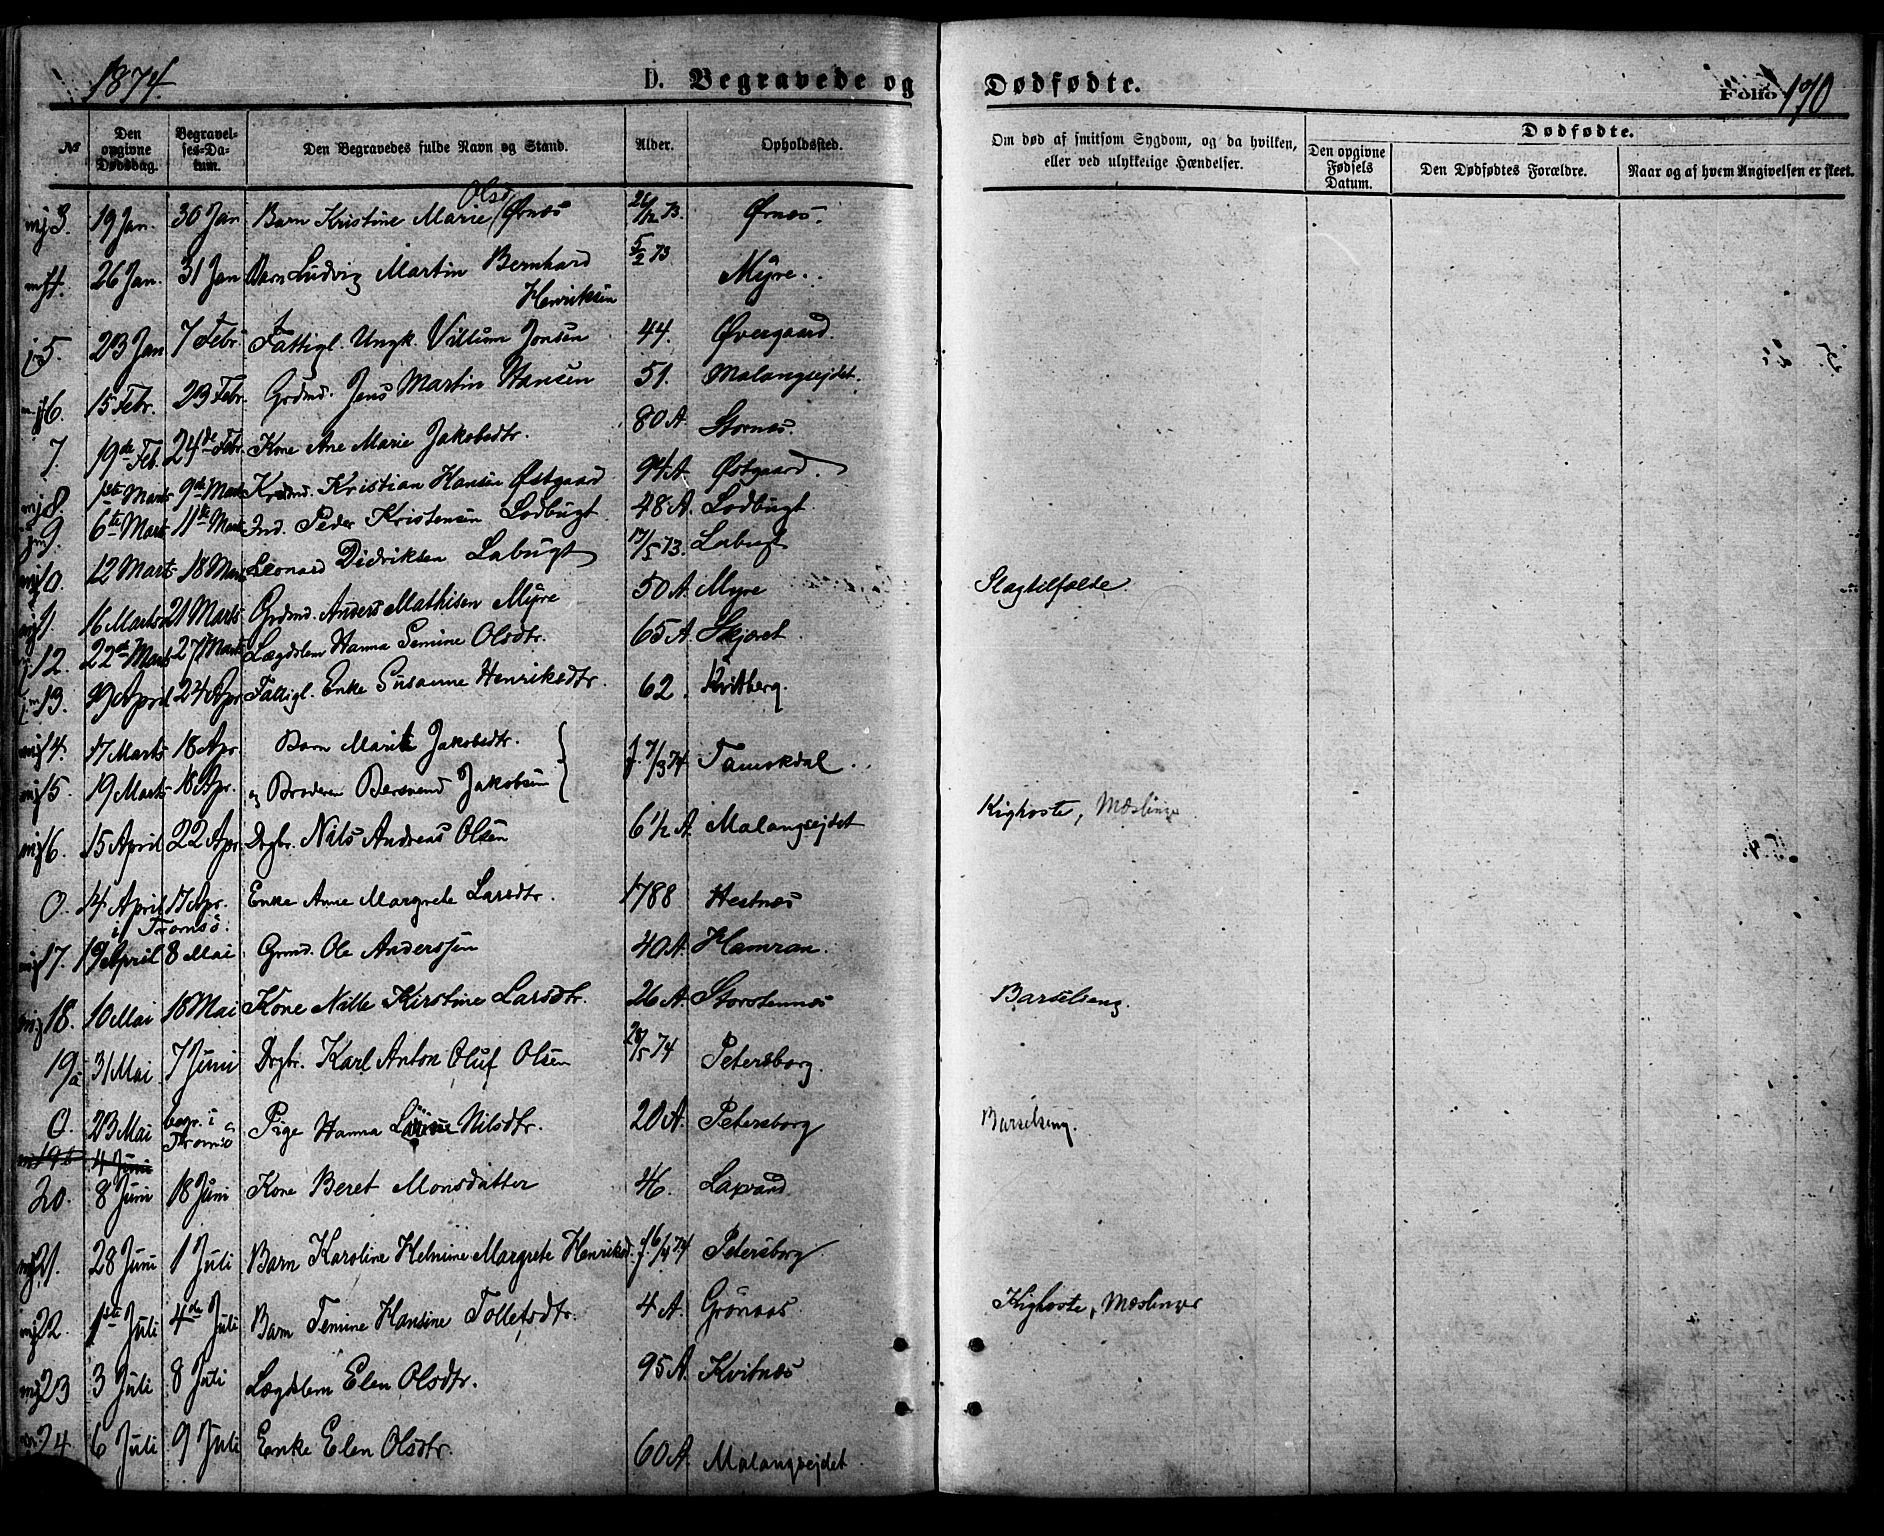 1874. D. Begravede og Dødfødte. Folio 170
No Den opgivne Dødsdag. Begravelses-Datum. Den Begravedes fulde Navn og Stand. Alder. Opholdssted. Om død af smitsom Sygdom, og da hvilken, eller ved ulykkelige Hændelser. Dødfødte. Den opgivne Fødsels Datum. Den Dødfødtes Forældre. Naar og af hvem Angivelsen er skeet.
3. 19 Jan. 30 Jan Barn Kristine Marie Olsd Ørnæs 26/12 73 Ørnæs.
4. 26 Jan. 31 Jan Barn Ludvig Martin Bernhard Henriksen 5/2 73 Myre.
5. 23 Jan 7 Febr. Fattigl. Ungk. Villum Jonsen 44. Øvergaard.
6. 15 Febr. 23 Febr. Grdmd. Jens Martin Hansen 51. Malangseidet.
7. 19de Feb. 24de Febr. Kone Ane Marie Jakobsdtr. 80 A. Stornæs.
8. 1ste Marts 9de Marts Krdmd. Kristian Hansen Østgaard 94 A. Østgaard.
9. 6te Marts 11te Marts Ind. Peder Kristensen Lodbugt 48 A. Lodbugt
10. 12 Marts 18 Marts Leonard Didriksen Labugt 17/5 73. Labugt
11. 16 Marts 21 Marts Grdmd. Anders Mathisen Myre 50 A. Myre Slagtilfælde.
12. 22de Marts 27 Marts Lægdslem Hanna Semine Olsdtr. 65 A. Skjæret.
13. 19 April 24 Apr Fattigl. Enke Susanne Henriksdtr. 62. Kvitberg.
14. 17 Marts 18 Apr. Barn Marit Jakobsdtr.
f. 7/3 74 Tamokdal.
15. 19 Marts 18 Apr. og Broderen Bersvend Jakobsen
16. 15 April 22 Apr. Drgbr. Nils Andreas Olsen 6 1/2 A. Malangseidet Kighoste, Mæslinger
0. 14 April 17 Apr. Enke Anne Margrete Larsdtr. 1788 Hestnæs
i Tromsö.
17. 19 April 8 Mai Grmd. Ole Anderssen 40 A. Hamran.
18. 10 Mai 18 Mai Kone Nille Kirstine Larsdtr. 26 A. Storstennæs Barselseng.
19a 31 Mai 7 Juni Drgbr. Karl Anton Oluf Olsen 28/5 74 Petersborg.
0. 23 Mai begr. i Tromsö Pige Hanna Nilsdtr. 20 A. Petersborg Barselseng.
19b 4 Juni
20. 8 Juni 18 Juni Kone Beret Monsdatter 46. Laxvand
21. 28 Juni 1 Juli Barn Karoline Helmine Margrete Henriksd. f. 16/4 74 Petersborg
22. 1ste Juli 4de Juli Barn Temine Hansine Tollefsdtr. 4 A. Grönnæs Kighoste, Mæslinger
23 3 Juli 8 Juli Lægdslem Elen Olsdtr. 95 A. Kvitnæs
24. 6 Juli 9 Juli Enke Elen Olsdtr. 60 A. Malangseidet